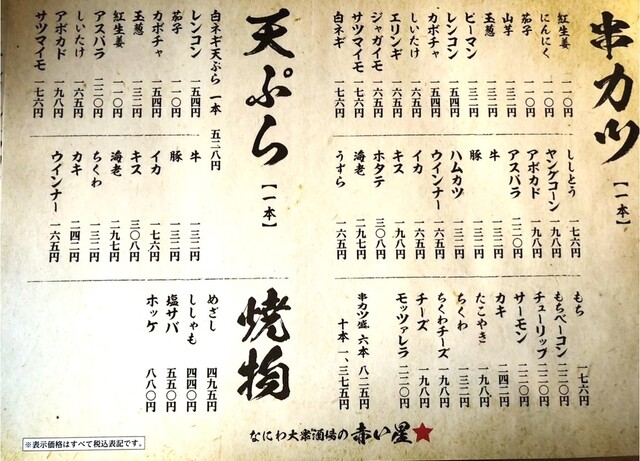 串カツ【一本】
紅生姜 一一〇円
にんにく 一一〇円
茄子 一一〇円
山芋 一三二円
玉葱 一三二円
ピーマン 一三二円
レンコン 一五四円
カボチャ 一五四円
しいたけ 一六五円
エリンギ 一六五円
ジャガイモ 一六五円
サツマイモ 一七六円
白ネギ 一七六円
ししとう 一七六円
ヤングコーン 一九八円
アボカド 一九八円
アスパラ 二二〇円
牛 一三二円
豚 一三二円
ハムカツ 一三二円
ウインナー 一六五円
イカ 一七六円
キス 一九八円
ホタテ 三〇八円
海老 二九七円
うずら 一六五円
もち 一七六円
もちベーコン 二二〇円
チューリップ 二二〇円
サーモン 二二〇円
カキ 二四二円
たこやき 一九八円
ちくわ 一三二円
ちくわチーズ 一九八円
チーズ 一九八円
モッツァレラ 二二〇円
串カツ盛 六本 八二五円
十本 一、三七五円
天ぷら【一本】
白ネギ天ぷら 一本 五二八円
レンコン 一五四円
茄子 一一〇円
カボチャ 一五四円
玉葱 一三二円
紅生姜 一一〇円
アスパラ 二二〇円
しいたけ 一六五円
アボカド 一九八円
サツマイモ 一七六円
牛 一三二円
豚 一三二円
イカ 一七六円
キス 三〇八円
海老 二九七円
ちくわ 一三二円
カキ 二四二円
ウインナー 一六五円
焼物
めざし 四九五円
ししゃも 四四〇円
塩サバ 五五〇円
ホッケ 八八〇円
なにわ大衆酒場の赤い星★
※表示価格はすべて税込表記です。